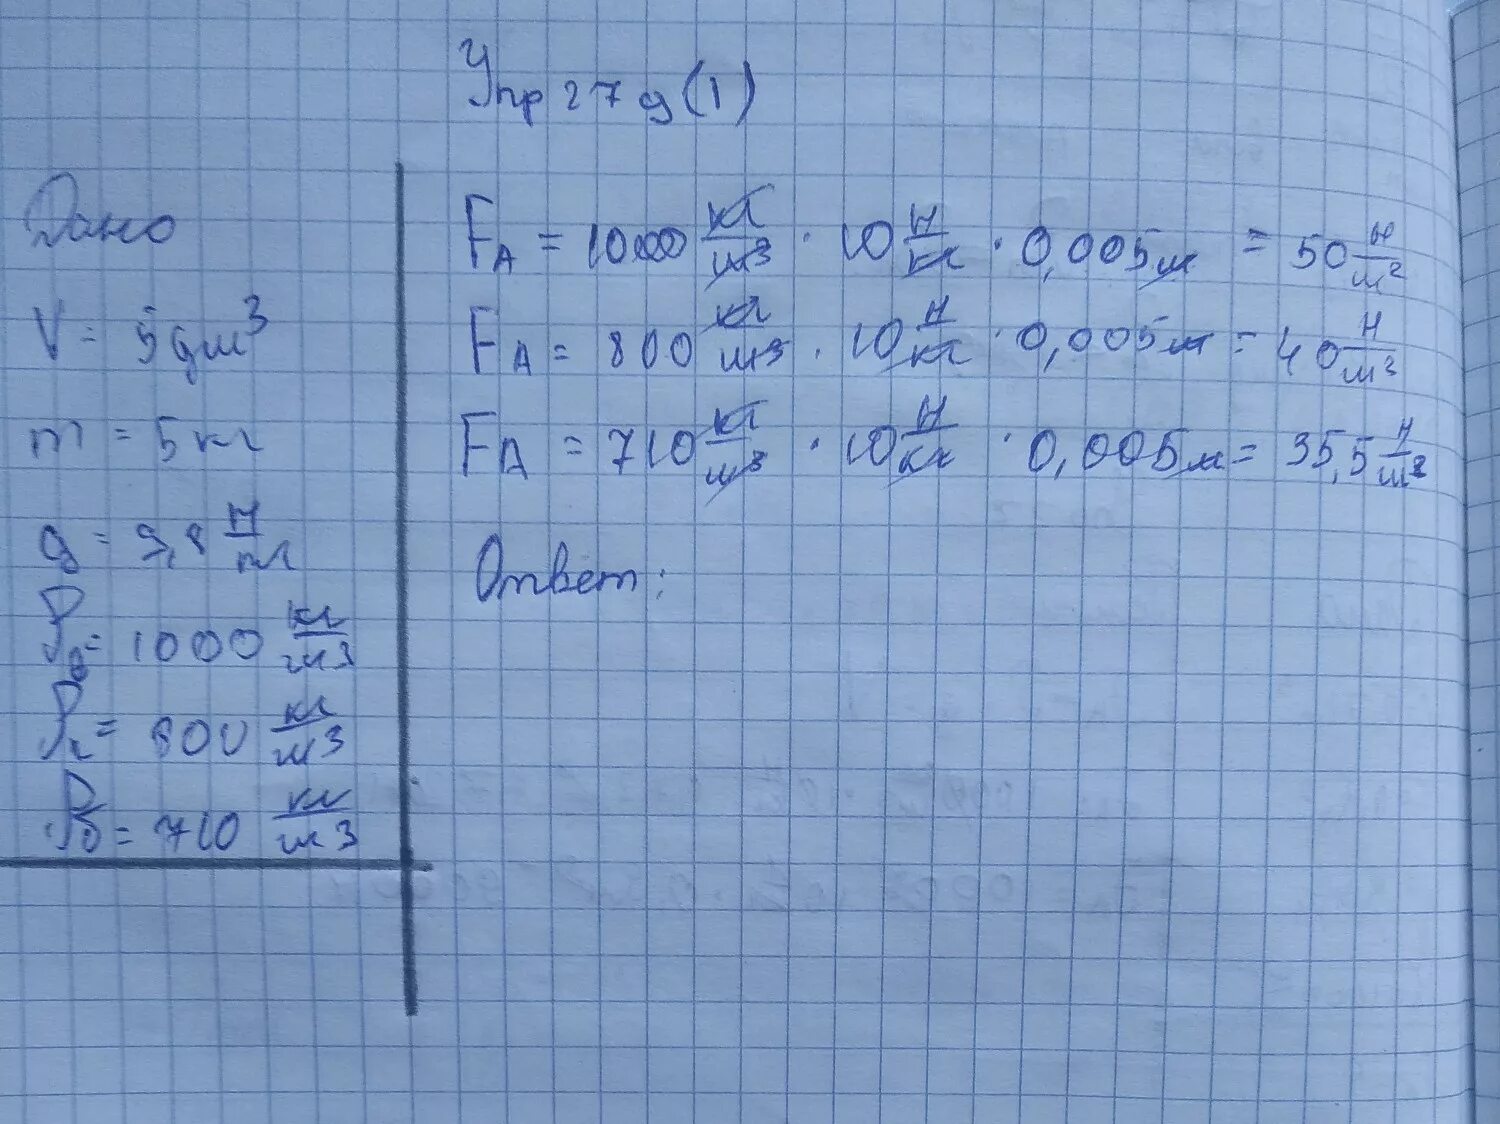 Упр 27 д (1)
Дано
V = 5 дм³
m = 5 кг
g = 9,8 Н/кг
ρв = 1000 кг/м³
ρк = 800 кг/м³
ρб = 710 кг/м³
FА = 1000 кг/м³ · 10 Н/кг · 0,005 м = 50 Н/м²
FА = 800 кг/м³ · 10 Н/кг · 0,005 м = 40 Н/м²
FА = 710 кг/м³ · 10 Н/кг · 0,005 м = 35,5 Н/м²
Ответ: